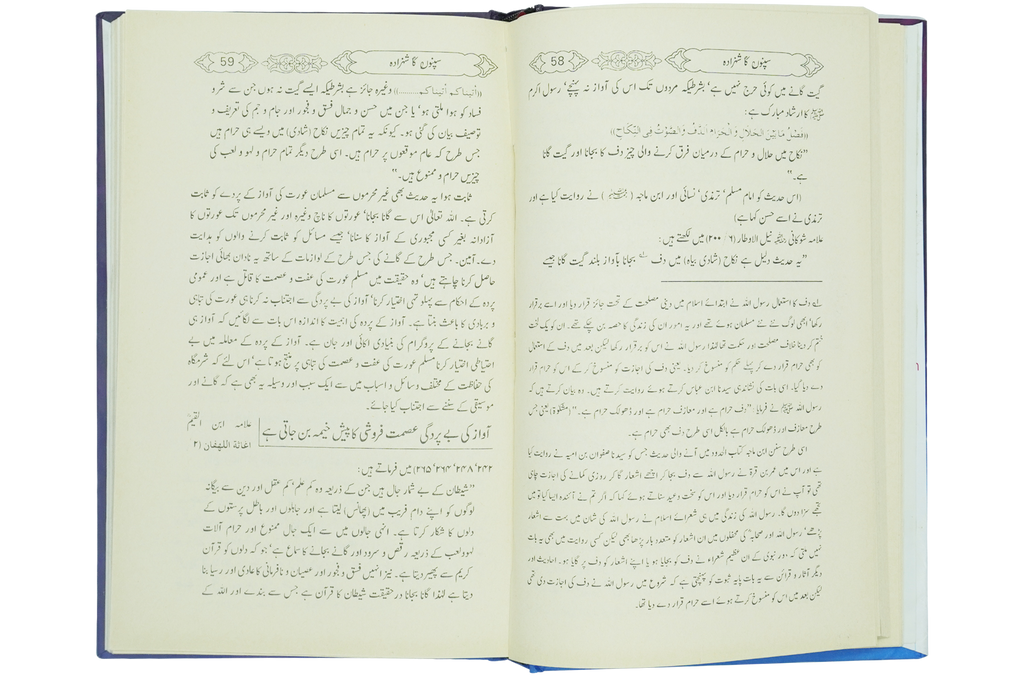 سپنوں کا شہزادہ
58
گیت گانے میں کوئی حرج نہیں ہے' بشرطیکہ مردوں تک اس کی آواز نہ پہنچے' رسول اکرم
ﷺ کا ارشاد مبارک ہے:
((فَصْلُ مَا بَيْنَ الْحَلَالِ وَالْحَرَامِ الدُّفُّ وَالصَّوْتُ فِي النِّكَاحِ))
"نکاح میں حلال و حرام کے درمیان فرق کرنے والی چیز دف کا بجانا اور گیت گانا
ہے۔"
(اس حدیث کو امام مسلم' ترمذی' نسائی اور ابن ماجہ نے روایت کیا ہے اور
ترمذی نے اسے حسن کہا ہے)
علامہ شوکانی نیل الاوطار (۶/ ۲۰۰) میں لکھتے ہیں:
"یہ حدیث دلیل ہے نکاح (شادی بیاہ) میں دف بجانا بآواز بلند گیت گانا جیسے
دف کا استعمال رسول اللہ نے ابتدائے اسلام میں دینی مصلحت کے تحت جائز قرار دیا اور اسے برقرار
رکھا' ابھی لوگ نئے نئے مسلمان ہوئے تھے اور یہ امور ان کی زندگی کا حصہ بن چکے تھے۔ ان کو یک لخت
ختم کر دینا خلاف مصلحت اور حکمت تھا لہٰذا رسول اللہ نے اس کو برقرار رکھا لیکن بعد میں دف کے استعمال
کو بھی حرام قرار دے کر پہلے حکم کو منسوخ کر دیا۔ یعنی دف کی اجازت کو منسوخ کر کے اس کو حرام قرار
دے دیا گیا۔ اسی بات کی نشاندہی سیدنا ابن عباس کرتے ہوئے روایت کرتے ہیں۔ وہ بیان کرتے ہیں کہ
رسول اللہ ﷺ نے فرمایا: "دف حرام ہے اور معازف حرام ہے اور ڈھولک حرام ہے۔" (مشکوٰۃ) یعنی جس
طرح معازف اور ڈھولک حرام ہے بالکل اسی طرح دف بھی حرام ہے۔
اسی طرح سنن ابن ماجہ کتاب الحدود میں آنے والی حدیث جس کو سیدنا صفوان بن امیہ نے روایت کیا
ہے اور اس میں عمر بن قرة نے رسول اللہ سے دف بجا کر اچھے اشعار گا کر روزی کمانے کی اجازت چاہی
تھی تو آپ نے اس کو حرام قرار دیا اور اس کو سخت وعید سناتے ہوئے کہا کہ اگر تم نے آئندہ ایسا کیا تو میں
تجھے سزا دوں گا۔ رسول اللہ کی زندگی میں ہی شعرائے اسلام نے رسول اللہ کی شان میں بہت سے اشعار
پڑھے' رسول اللہ اور صحابہ کی محفلوں میں ان اشعار کو متعدد بار پڑھا بھی لیکن کسی روایت میں بھی یہ بات
نہیں ملتی کہ دور نبوی کے ان عظیم شعراء نے دف کو بجایا ہو یا اپنے اشعار کو دف پر گایا ہو۔ احادیث اور
دیگر آثار و قرائن سے یہ بات پایہ ثبوت کو پہنچتی ہے کہ شروع میں رسول اللہ نے دف کی اجازت دی تھی
لیکن بعد میں اس کو منسوخ کرتے ہوئے اسے حرام قرار دے دیا تھا۔
سپنوں کا شہزادہ
59
((أتيناكم أتيناكم........)) وغیرہ جائز ہے بشرطیکہ ایسے گیت نہ ہوں جن سے شر و
فساد کو ہوا ملتی ہو' یا جن میں حسن و جمال فسق و فجور اور جام و خم کی تعریف و
توصیف بیان کی گئی ہو۔ کیونکہ یہ تمام چیزیں نکاح (شادی) میں ویسے ہی حرام ہیں
جس طرح کہ عام موقعوں پر حرام ہیں۔ اسی طرح دیگر تمام حرام و لہو و لعب کی
چیزیں حرام و ممنوع ہیں۔"
ثابت ہوا یہ حدیث بھی غیر محرموں سے مسلمان عورت کی آواز کے پردے کو ثابت
کرتی ہے۔ اللہ تعالیٰ اس سے گانا بجانا' عورتوں کا ناچ وغیرہ اور غیر محرموں تک عورتوں کا
آزادانہ بغیر کسی مجبوری کے آواز کا سنانا' جیسے مسائل کو ثابت کرنے والوں کو ہدایت
دے۔ آمین۔ جس طرح کے گانے کی جس طرح کے لوازمات کے ساتھ یہ نادان بھائی اجازت
حاصل کرنا چاہتے ہیں' وہ حقیقت میں مسلم عورت کی عفت و عصمت کا قاتل ہے اور عمومی
پردہ کے احکام سے پہلو تہی اختیار کرنا' آواز کی بے پردگی سے اجتناب نہ کرنا ہی عورت کی تباہی
و بربادی کا باعث بنتا ہے۔ آواز کے پردہ کی اہمیت کا اندازہ اس بات سے لگائیں کہ آواز ہی
گانے بجانے کے پروگرام کی بنیادی اکائی اور جان ہے۔ آواز کے پردہ کے معاملہ میں بے
احتیاطی اختیار کرنا مسلم عورت کی عفت و عصمت کی تباہی پر منتج ہوتا ہے' اس لئے کہ شرمگاہ
کی حفاظت کے مختلف وسائل و اسباب میں سے ایک سبب اور وسیلہ یہ بھی ہے کہ گانے اور
موسیقی کے سننے سے اجتناب کیا جائے۔
آواز کی بے پردگی عصمت فروشی کا پیش خیمہ بن جاتی ہے
علامہ ابن القیم
اغاثة اللهفان (۲
۲۴۲' ۲۴۸' ۲۶۴' ۲۶۵) میں فرماتے ہیں:
"شیطان کے بے شمار جال ہیں جن کے ذریعہ وہ کم علم' کم عقل اور دین سے بیگانہ
لوگوں کو اپنے دام فریب میں (پھانس) لیتا ہے اور جاہلوں اور باطل پرستوں کے
دلوں کا شکار کرتا ہے۔ انہی جالوں میں سے ایک جال ممنوع اور حرام آلات
لہو ولعب کے ذریعہ رقص و سرود اور گانے بجانے کا سماع ہے' جو کہ دلوں کو قرآن
کریم سے پھیر دیتا ہے۔ نیز انہیں فسق و فجور اور عصیان و نافرمانی کا عادی اور رسیا بنا
دیتا ہے لہٰذا گانا بجانا درحقیقت شیطان کا قرآن ہے جس سے بندے اور اللہ کے